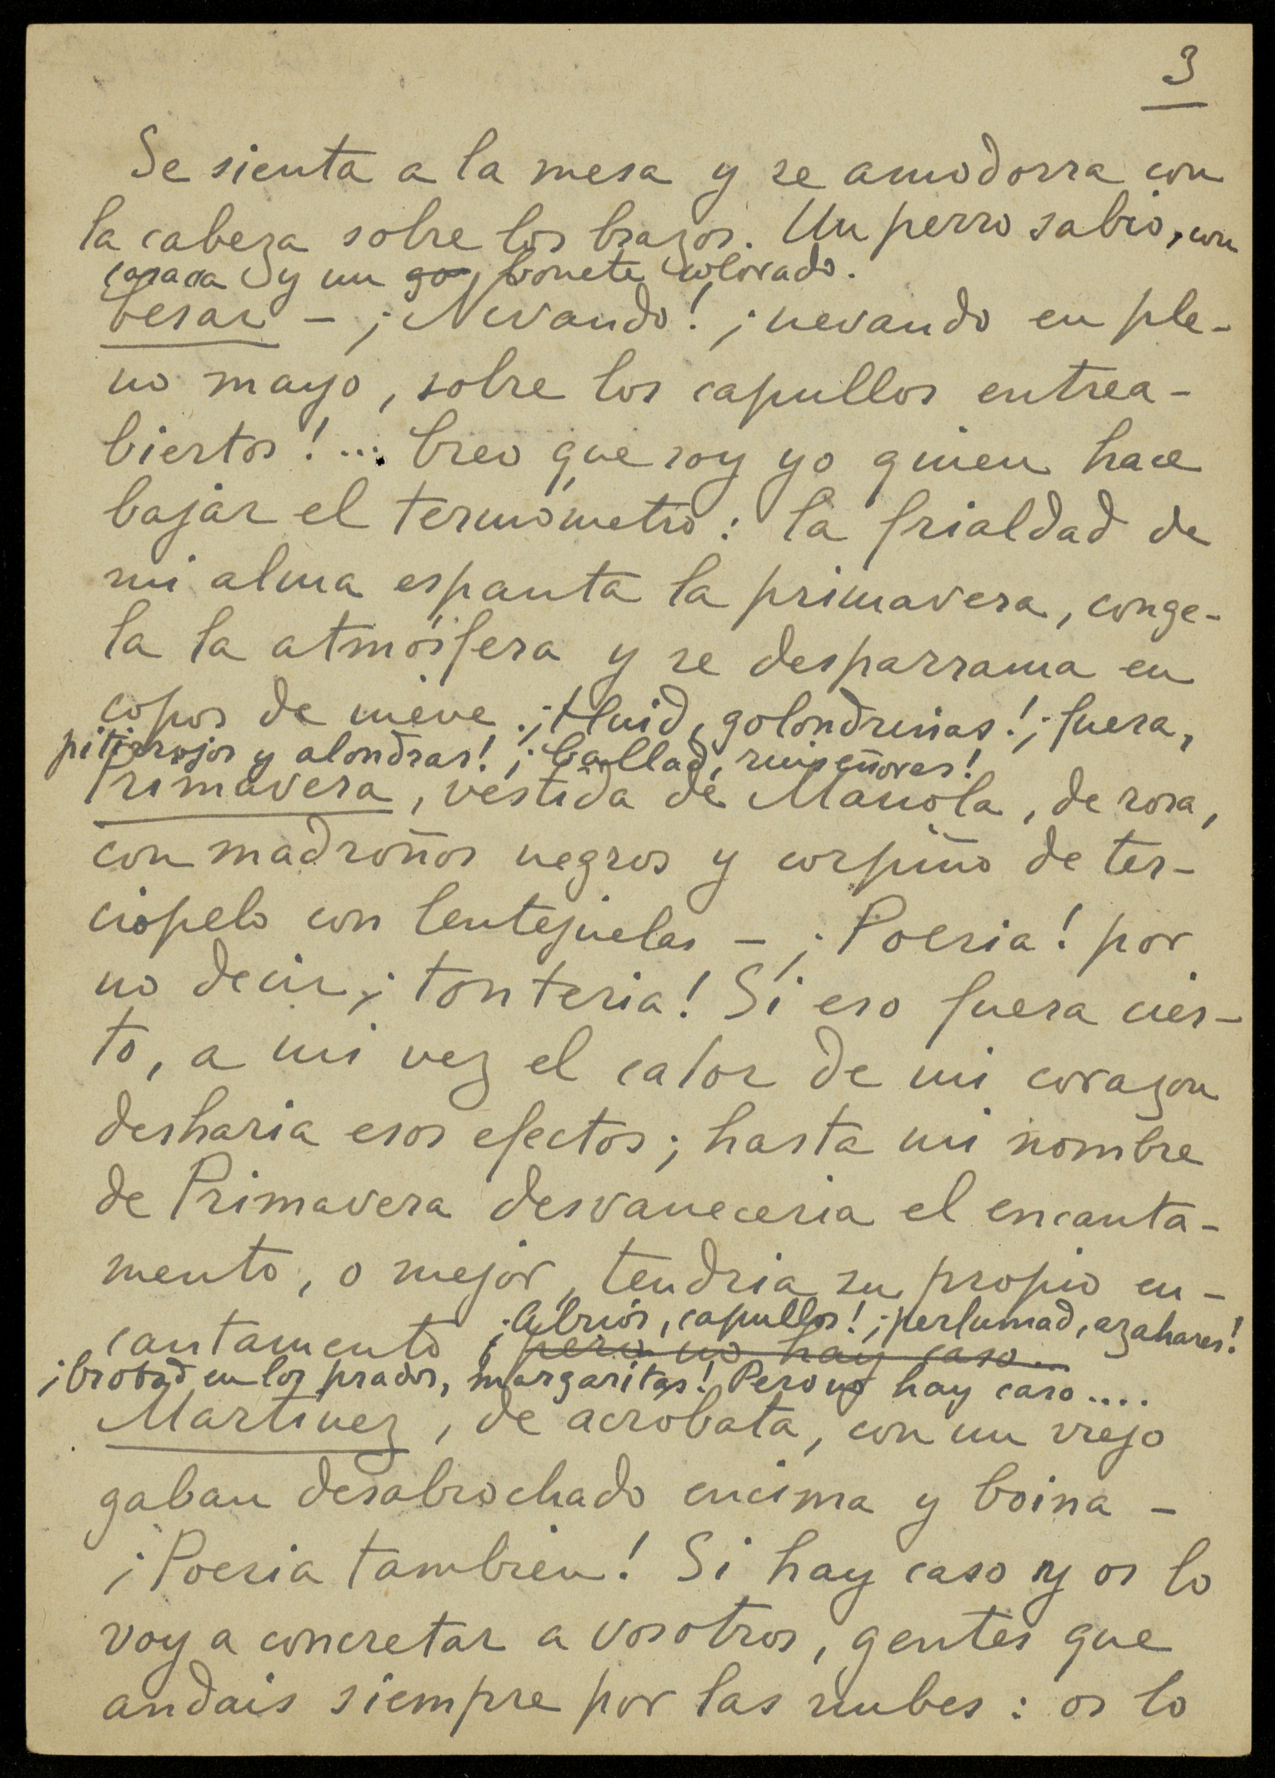 3
Se sienta a la mesa y se amodorra con
la cabeza sobre los brazos. Un perro sabio, con
casaca y un go, bonete colorado.
Cesar – ¡Nevando! ¡nevando en ple-
no mayo, sobre los capullos entrea-
biertos!... Creo que soy yo quien hace
bajar el termómetro: la frialdad de
mi alma espanta la primavera, conge-
la la atmósfera y se desparrama en
copos de nieve. ¡Huid, golondrinas! ¡fuera,
pitirrojos y alondras! ¡Callad, ruiseñores!
Primavera, vestida de Manola, de rosa,
con madroños negros y corpiño de ter-
ciopelo con lentejuelas – ¡Poesia! por
no decir ¡tonteria! Si eso fuera cier-
to, a mi vez el calor de mi corazon
desharia esos efectos; hasta mi nombre
de Primavera desvaneceria el encanta-
mento, o mejor, tendria su propio en-
cantamento ¡Abrios, capullos! ¡perfumad, azahares!
pero no hay caso...
¡brotad en los prados, margaritas! Pero no hay caso....
Martinez, de acrobata, con un viejo
gaban desabrochado encima y boina –
¡Poesia tambien! Si hay caso y os lo
voy a concretar a vosotros, gentes que
andais siempre por las nubes: os lo